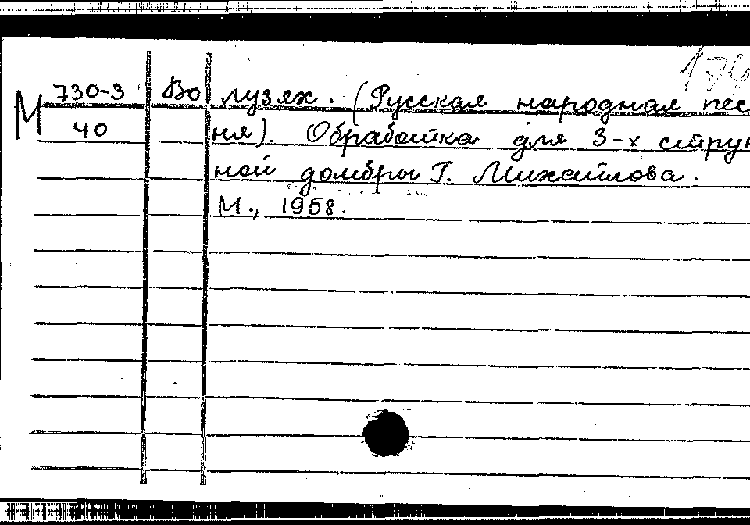 179
М 730-3 Во лузях. (Русская народная пес
40 ня). Обработка для 3-х струн
ной домбры Г. Михайлова.
М., 1958.